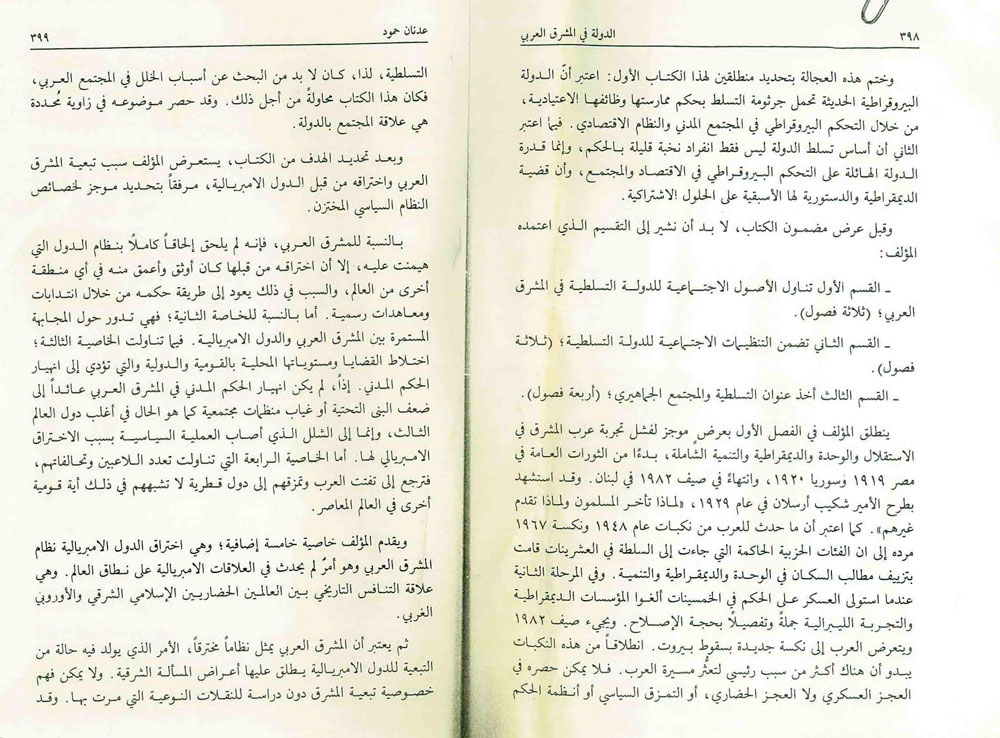 ٣٩٨
الدولة في المشرق العربي
وختم هذه العجالة بتحديد منطلقين لهذا الكتاب الأول: اعتبر أنّ الدولة
البيروقراطية الحديثة تحمل جرثومة التسلط بحكم ممارستها وظائفها الاعتيادية،
من خلال التحكم البيروقراطي في المجتمع المدني والنظام الاقتصادي. فيما اعتبر
الثاني أن أساس تسلط الدولة ليس فقط انفراد نخبة قليلة بالحكم، وإنما قدرة
الدولة الهائلة على التحكم البيروقراطي في الاقتصاد والمجتمع، وأن قضية
الديمقراطية والدستورية لها الأسبقية على الحلول الاشتراكية.
وقبل عرض مضمون الكتاب، لا بد أن نشير إلى التقسيم الذي اعتمده
المؤلف:
ـ القسم الأول تناول الأصول الاجتماعية للدولة التسلطية في المشرق
العربي؛ (ثلاثة فصول).
ـ القسم الثاني تضمن التنظيمات الاجتماعية للدولة التسلطية؛ (ثلاثة
فصول).
ـ القسم الثالث أخذ عنوان التسلطية والمجتمع الجماهيري؛ (أربعة فصول).
ينطلق المؤلف في الفصل الأول بعرضٍ موجز لفشل تجربة عرب المشرق في
الاستقلال والوحدة والديمقراطية والتنمية الشاملة، بدءًا من الثورات العامة في
مصر ١٩١٩ وسوريا ١٩٢٠، وانتهاءً في صيف ١٩٨٢ في لبنان. وقد استشهد
بطرح الأمير شكيب أرسلان في عام ١٩٢٩، «لماذا تأخر المسلمون ولماذا تقدم
غيرهم». كما اعتبر أن ما حدث للعرب من نكبات عام ١٩٤٨ ونكسة ١٩٦٧
مرده إلى ان الفئات الحزبية الحاكمة التي جاءت إلى السلطة في العشرينات قامت
بتزييف مطالب السكان في الوحدة والديمقراطية والتنمية. وفي المرحلة الثانية
عندما استولى العسكر على الحكم في الخمسينات ألغوا المؤسسات الديمقراطية
والتجربة الليبرالية جملةً وتفصيلًا بحجة الإصلاح. ويجيء صيف ١٩٨٢
ويتعرض العرب إلى نكسة جديدة بسقوط بيروت. انطلاقاً من هذه النكبات
يبدو أن هناك أكثر من سبب رئيسي لتعثُّر مسيرة العرب. فلا يمكن حصره في
العجز العسكري ولا العجز الحضاري، أو التمزق السياسي أو أنظمة الحكم
عدنان حمود
٣٩٩
التسلطية، لذا، كان لا بد من البحث عن أسباب الخلل في المجتمع العربي،
فكان هذا الكتاب محاولةً من أجل ذلك. وقد حصر موضوعه في زاوية مُحددة
هي علاقة المجتمع بالدولة.
وبعد تحديد الهدف من الكتاب، يستعرض المؤلف سبب تبعية المشرق
العربي واختراقه من قبل الدول الامبريالية، مرفقاً بتحديد موجز لخصائص
النظام السياسي المختزن.
بالنسبة للمشرق العربي، فإنه لم يلحق إلحاقاً كاملًا بنظام الدول التي
هيمنت عليه، إلا أن اختراقه من قبلها كان أوثق وأعمق منه في أي منطقة
أخرى من العالم، والسبب في ذلك يعود إلى طريقة حكمه من خلال انتدابات
ومعاهدات رسمية. أما بالنسبة للخاصة الثانية؛ فهي تدور حول المجابهة
المستمرة بين المشرق العربي والدول الامبريالية. فيما تناولت الخاصية الثالثة؛
اختلاط القضايا ومستوياتها المحلية بالقومية والدولية والتي تؤدي إلى انهيار
الحكم المدني. إذاً، لم يكن انهيار الحكم المدني في المشرق العربي عائداً إلى
ضعف البنى التحتية أو غياب منظمات مجتمعية كما هو الحال في أغلب دول العالم
الثالث، وإنما إلى الشلل الذي أصاب العملية السياسية بسبب الاختراق
الامبريالي لها. أما الخاصية الرابعة التي تناولت تعدد اللاعبين وتحالفاتهم،
فترجع إلى تفتت العرب وتمزقهم إلى دول قطرية لا تشبههم في ذلك أية قومية
أخرى في العالم المعاصر.
ويقدم المؤلف خاصية خامسة إضافية؛ وهي اختراق الدول الامبريالية نظام
المشرق العربي وهو أمرٌ لم يحدث في العلاقات الامبريالية على نطاق العالم. وهي
علاقة التنافس التاريخي بين العالمين الحضاريين الإسلامي الشرقي والأوروبي
الغربي.
ثم يعتبر أن المشرق العربي يمثل نظاماً مخترقاً، الأمر الذي يولد فيه حالة من
التبعية للدول الامبريالية يطلق عليها أعراض المسألة الشرقية. ولا يمكن فهم
خصوصية تبعية المشرق دون دراسة للنقلات النوعية التي مرت بها. وقد